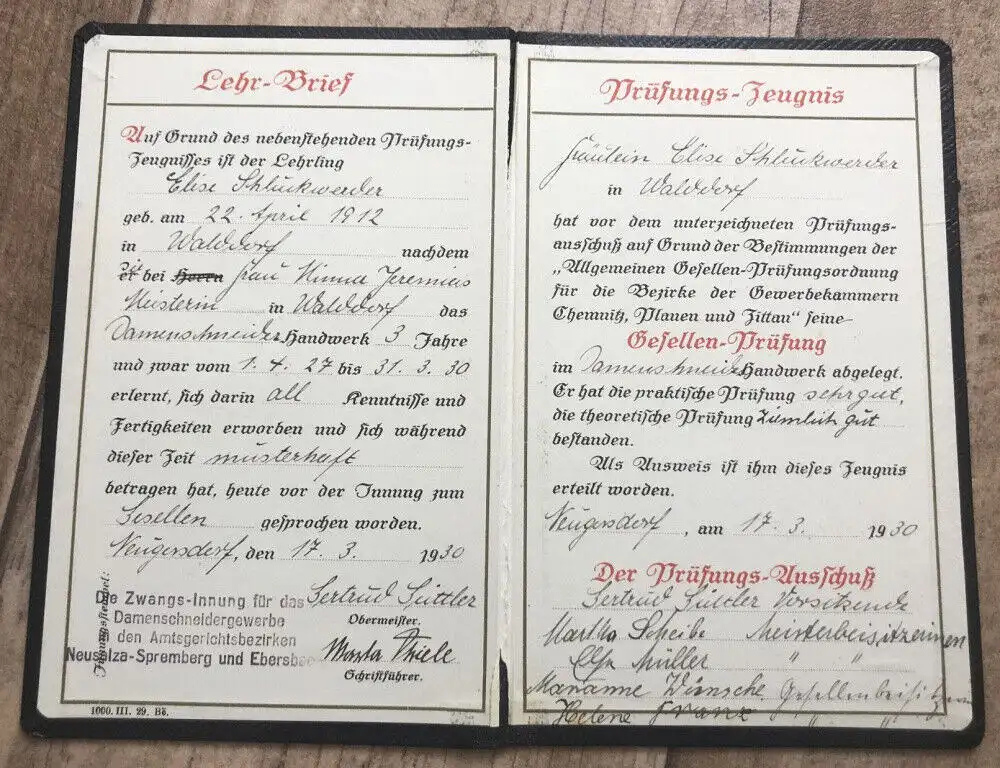 Lehr-Brief
Auf Grund des nebenstehenden Prüfungs-
Zeugnisses ist der Lehrling
Elise Schluckwerder
geb. am 22. April 1912
in Walddorf nachdem
er bei Herrn Frau Minna Jeremias
Meisterin in Walddorf das
Damenschneider Handwerk 3 Jahre
und zwar vom 1. 4. 27 bis 31. 3. 30
erlernt, sich darin all Kenntnisse und
Fertigkeiten erworben und sich während
dieser Zeit musterhaft
betragen hat, heute vor der Innung zum
Gesellen gesprochen worden.
Neugersdorf, den 17. 3. 1930
Innungsstempel:
Die Zwangs-Innung für das
Damenschneidergewerbe
den Amtsgerichtsbezirken
Neusalza-Spremberg und Ebersbac
Gertrud
Obermeister.
Marta Thiele
Schriftführer.
1000. III. 29. Bö.
Prüfungs-Zeugnis
Fräulein Elise Schluckwerder
in Walddorf
hat vor dem unterzeichneten Prüfungs-
ausschuß auf Grund der Bestimmungen der
„Allgemeinen Gesellen-Prüfungsordnung
für die Bezirke der Gewerbekammern
Chemnitz, Plauen und Zittau“ seine
Gesellen-Prüfung
im Damenschneid. Handwerk abgelegt.
Er hat die praktische Prüfung sehr gut,
die theoretische Prüfung ziemlich gut
bestanden.
Als Ausweis ist ihm dieses Zeugnis
erteilt worden.
Neugersdorf, am 17. 3. 1930
Der Prüfungs-Ausschuß
Gertrud Vorsitzende
Martha Scheibe Meisterbeisitzerinnen
Elsa Müller " "
Marianne Wünsche Gesellenbeisitzerin
Helene Franz " "